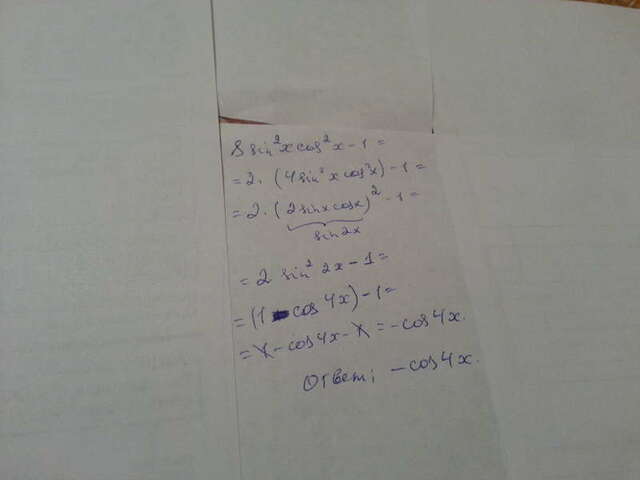 8 sin²x cos²x - 1 =
= 2 · (4 sin²x cos²x) - 1 =
= 2 · (2 sinx cosx)² - 1 =
sin 2x
= 2 sin² 2x - 1 =
= (1 - cos 4x) - 1 =
= 1 - cos 4x - 1 = - cos 4x.
Ответ: - cos 4x.